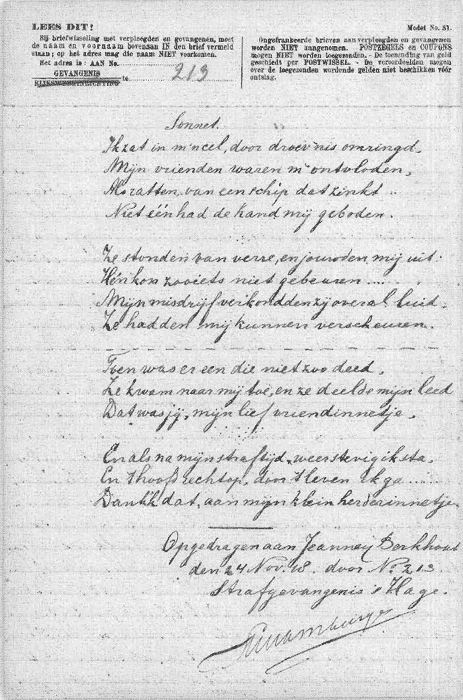 LEES DIT!
Bij briefwisseling met verpleegden en gevangenen, moet
de naam en voornaam bovenaan IN den brief vermeld
staan; op het adres mag die naam NIET voorkomen.
Het adres is: AAN No. 213
GEVANGENIS
RIJKSWERKINRICHTING te
Model No. 81.
Ongefrankeerde brieven aan verpleegden en gevangenen
worden NIET aangenomen. POSTZEGELS en COUPONS
mogen NIET worden toegezonden. - De toezending van geld
geschiedt per POSTWISSEL. - De veroordeelden mogen
over de toegezonden wordende gelden niet beschikken vóór
ontslag.
Sonnet.
Ik zat in m'n cel, door droev'nis omringd,
Mijn vrienden waren m' ontvloden,
Als ratten, van een schip dat zinkt...
Niet één had de hand mij geboden.
Ze stonden van verre, en jouwden mij uit:
Hén kon zooiets niet gebeuren.....
Mijn misdrijf verkondden zij overal luid,
Ze hadden mij kunnen verscheuren.
Toen was er een die niet zoo deed,
Ze kwam naar mij toe, en ze deelde mijn leed
Dat was jij, mijn lief vriendinnetje.
En als na mijn straftijd, weer stevig ik sta,
En 't hoofd rechtop, door 't leven ik ga.....
Dank ik dat, aan mijn klein herderinnetje.
Opgedragen aan Jeanney Berkhout
den 24 Nov. 18. door No 213
Strafgevangenis 's Hage.